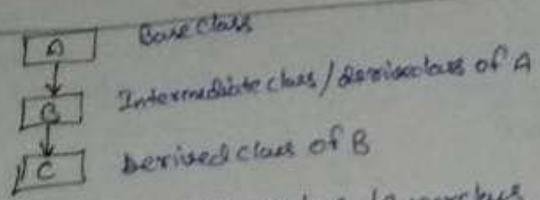 A Base Class
B Intermediate class / derived class of A
C Derived class of B